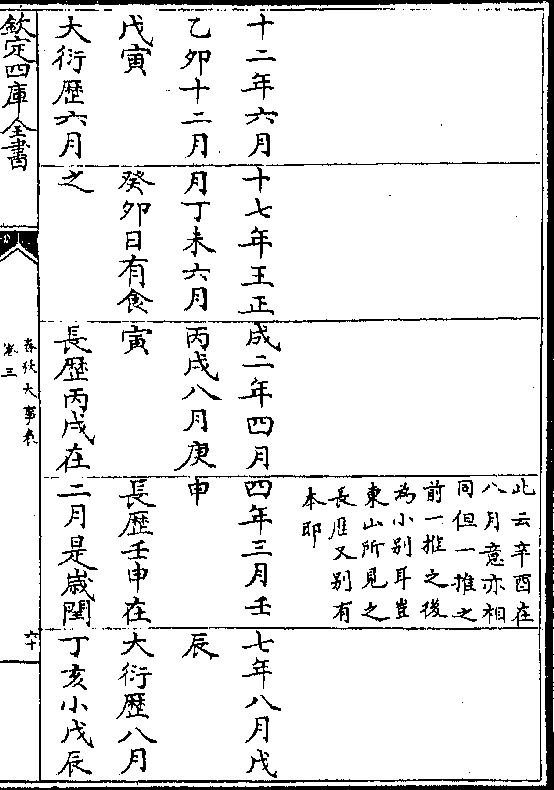 十二年六月
乙卯十二月
戊寅
大衍歷六月
十七年王正
月丁未六月
癸卯日有食
之
成二年四月
丙戌八月庚
寅
長歷丙戌在
此云辛酉在
八月意亦相
同但一推之
前一推之後
為小别耳豈
東山所見之
長厯又别有
本耶
四年三月壬
申
長歷壬申在
二月是歲閏
七年八月戊
辰
大衍歷八月
丁亥小戊辰
欽定四庫全書
春秋大事表
卷三
六十